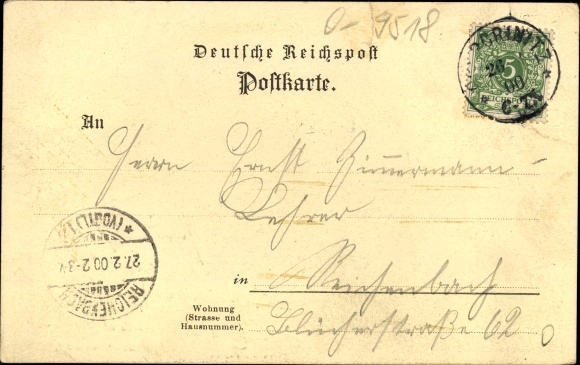 0-9518
Deutsche Reichspost
Postkarte.
5
REICHSPOST
26
00
An
Herrn Ernst Zimmermann
Lehrer
(VOGTL)
27.2.00.2-3
REICHENBACH
in Reichenbach
Wohnung
(Strasse und
Hausnummer).
Blücherstraße 62